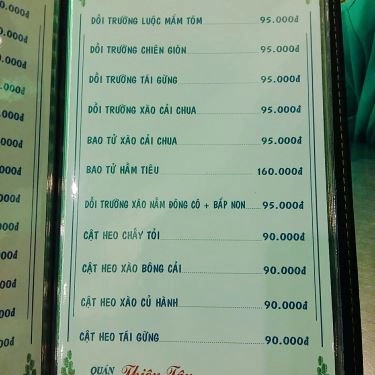 DỒI TRƯỜNG LUỘC MẮM TÔM 95.000đ
DỒI TRƯỜNG CHIÊN GIÒN 95.000đ
DỒI TRƯỜNG TÁI GỪNG 95.000đ
DỒI TRƯỜNG XÀO CẢI CHUA 95.000đ
BAO TỬ XÀO CẢI CHUA 95.000đ
BAO TỬ HẦM TIÊU 160.000đ
DỒI TRƯỜNG XÀO NẤM ĐÔNG CÔ + BẮP NON 95.000đ
CẬT HEO CHÁY TỎI 90.000đ
CẬT HEO XÀO BÔNG CẢI 90.000đ
CẬT HEO XÀO CỦ HÀNH 90.000đ
CẬT HEO TÁI GỪNG 90.000đ
QUÁN